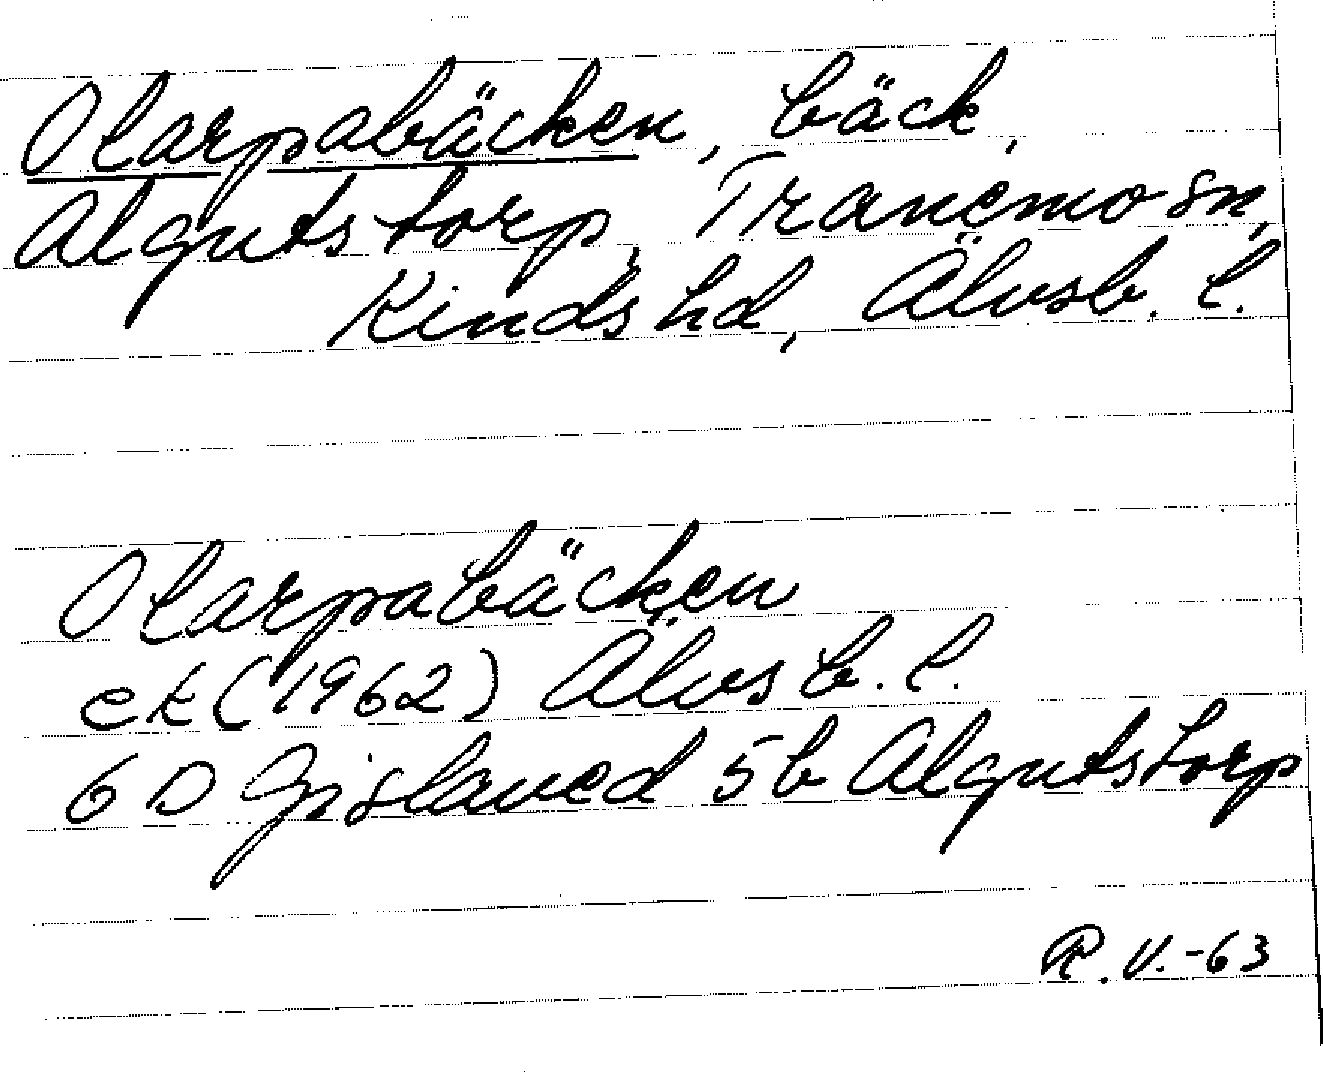 Olarpabäcken, bäck,
Algutstorp, Tranemo sn,
Kinds hd, Älvsb. l.
Olarpabäcken
ek (1962) Älvsb. l.
6 D Gislaved 5b Algutstorp
R.V.-63